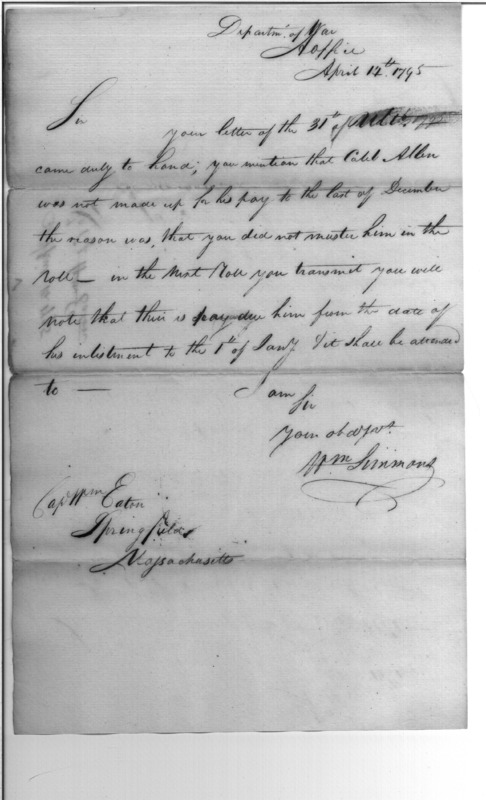 Departmt. of War
A office
April 14th. 1795
Sir
your letter of the 31st of Ulto.
came duly to hand; you mention that Caleb Allen
was not made up for his pay to the last of December
the reason was, that you did not muster him in the
roll — in the next Roll you transmit you will
note that their is pay due him from the date of
his enlistment to the 1st of Jany. & it shall be attended
to —
I am
Sir
your ob serv't.
Wm Simmons
Cap Wm Eaton
Springfield
Massachusetts